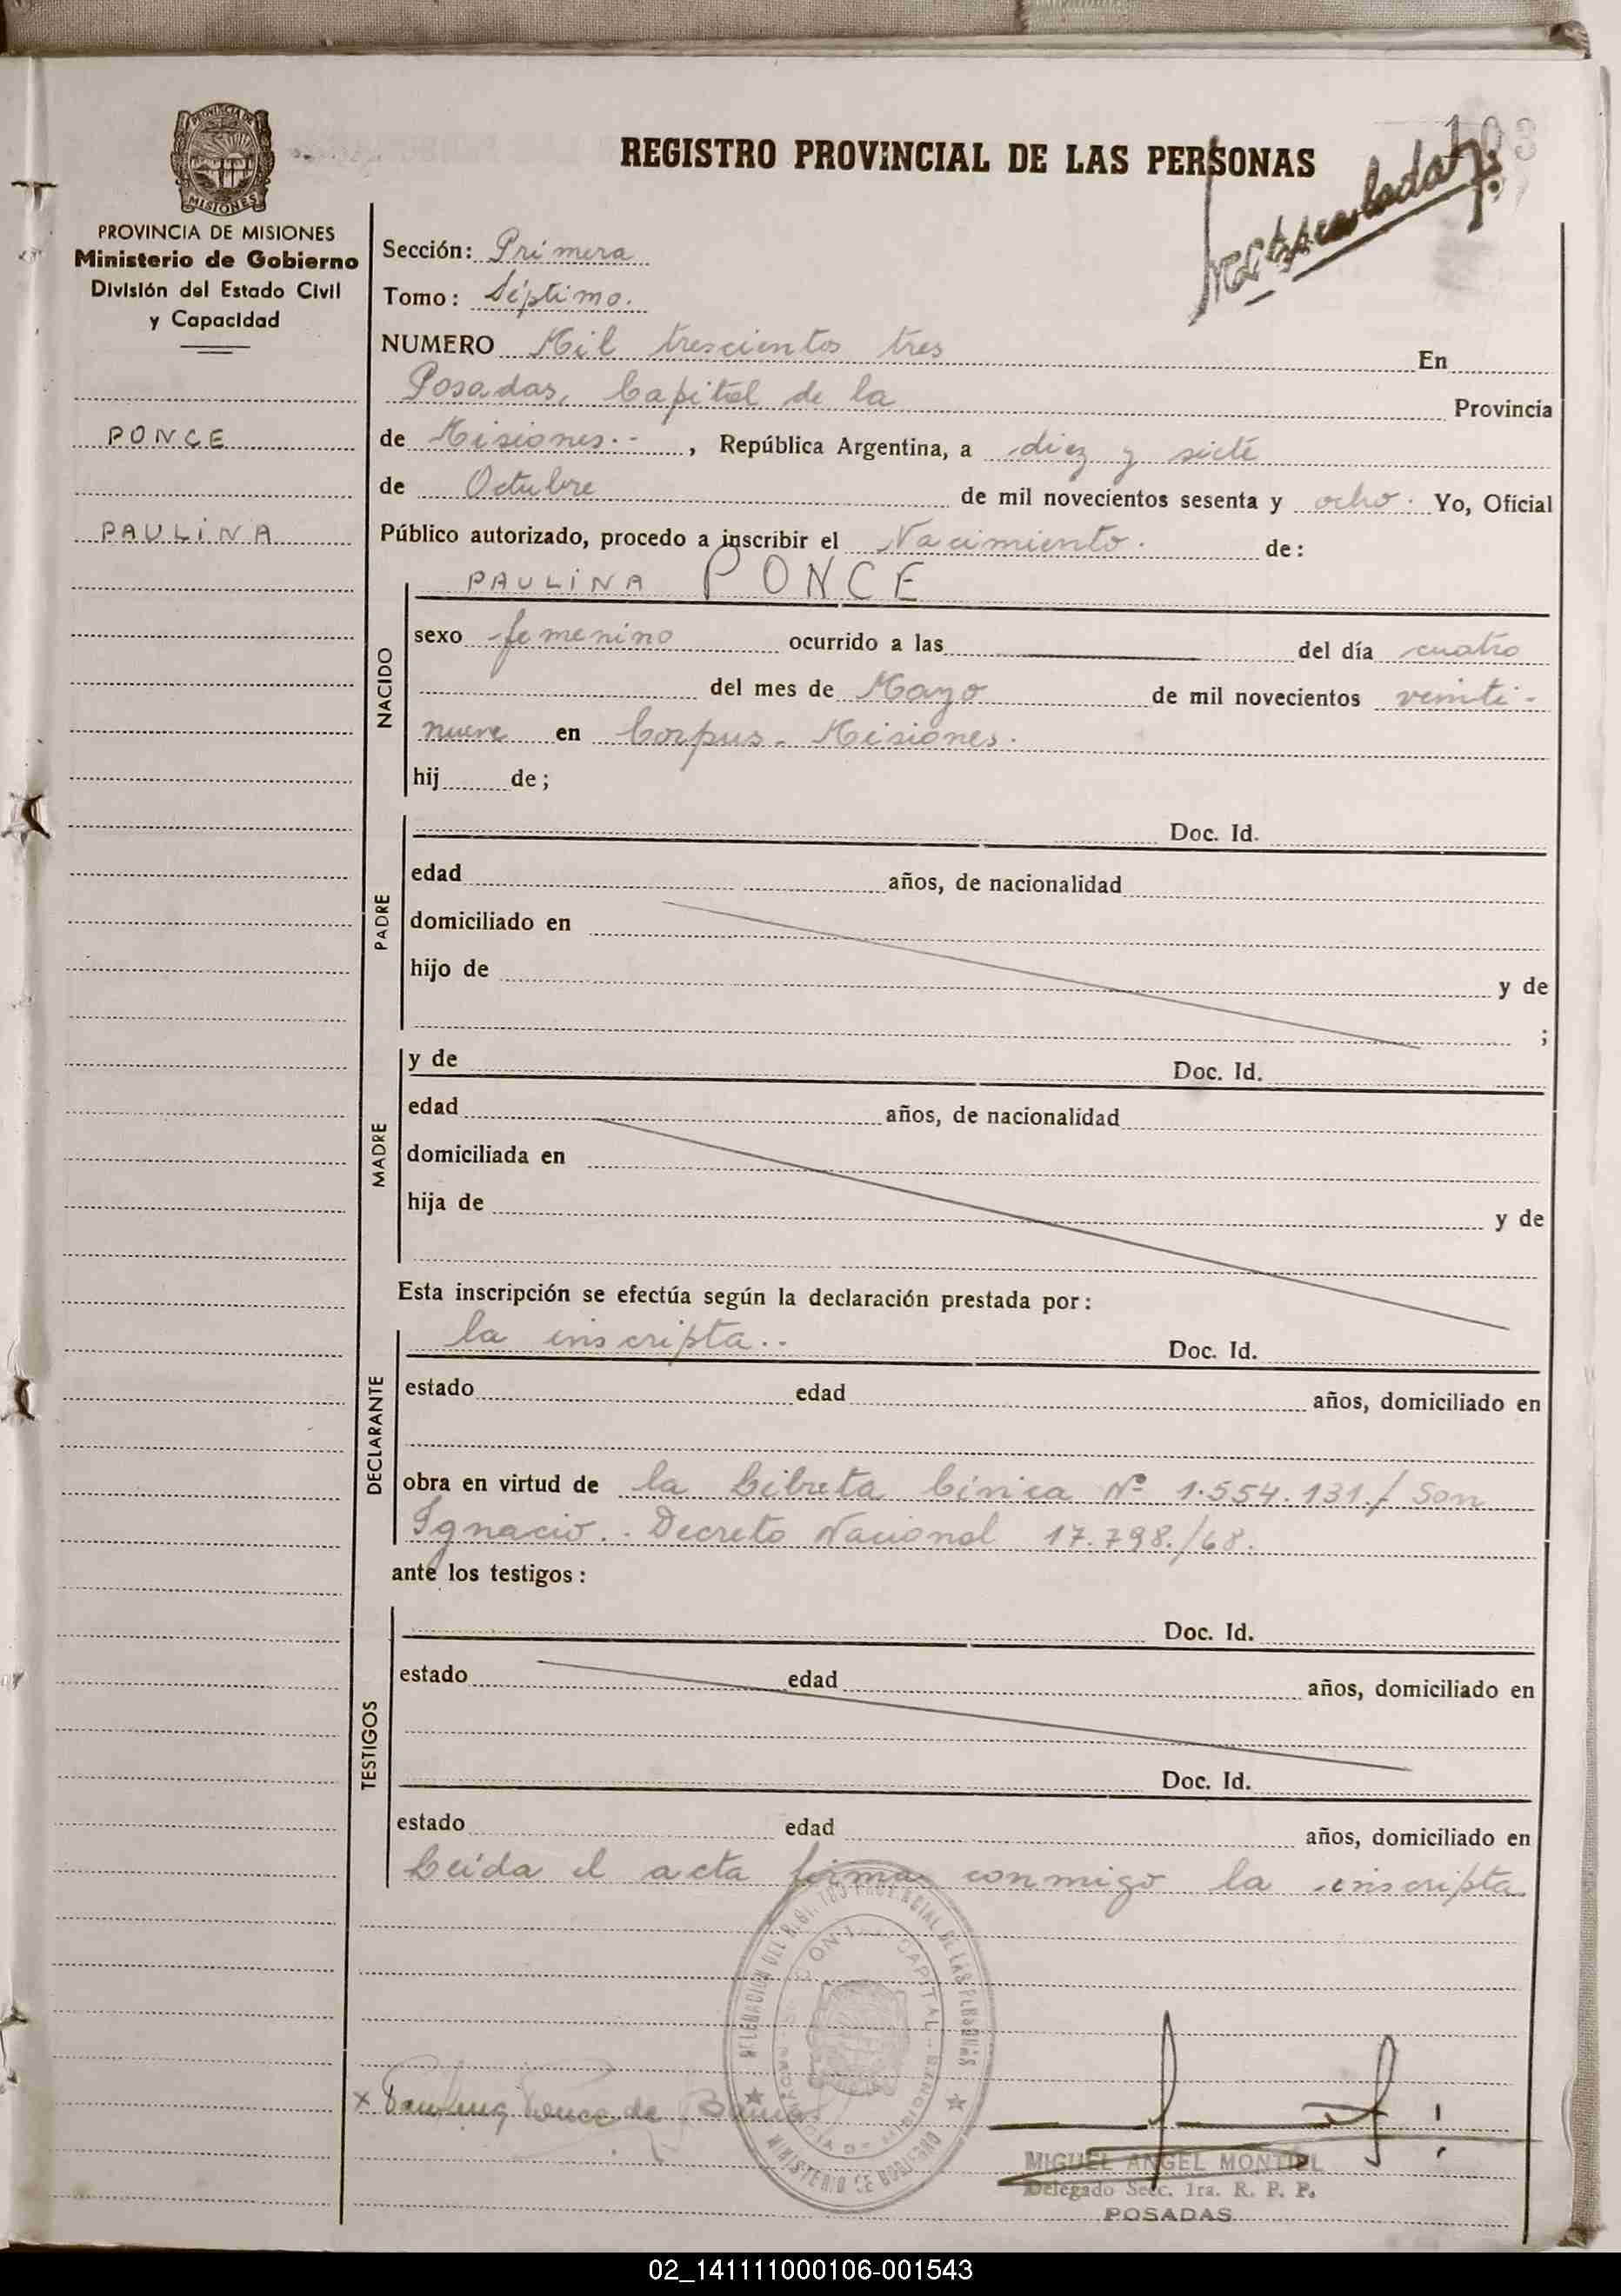 PROVINCIA DE
MISIONES
REGISTRO PROVINCIAL DE LAS PERSONAS
PROVINCIA DE MISIONES
Ministerio de Gobierno
División del Estado Civil
y Capacidad
PONCE
PAULINA
Sección: Primera
Tomo: Séptimo.
NUMERO Mil trescientos tres En
Posadas, Capital de la Provincia
de Misiones.- , República Argentina, a diez y siete
de Octubre de mil novecientos sesenta y ocho. Yo, Oficial
Público autorizado, procedo a inscribir el Nacimiento. de:
PAULINA PONCE
NACIDO
sexo femenino ocurrido a las del día cuatro
del mes de Mayo de mil novecientos veinti-
nueve en Corpus - Misiones.
hij de;
PADRE
Doc. Id.
edad años, de nacionalidad
domiciliado en
hijo de y de
;
MADRE
y de Doc. Id.
edad años, de nacionalidad
domiciliada en
hija de y de
Esta inscripción se efectúa según la declaración prestada por:
DECLARANTE
la inscripta.. Doc. Id.
estado edad años, domiciliado en
obra en virtud de la Libreta Cívica Nº 1.554.131./ San
Ignacio.. Decreto Nacional 17.798./68.
ante los testigos:
TESTIGOS
Doc. Id.
estado edad años, domiciliado en
Doc. Id.
estado edad años, domiciliado en
Leída el acta firma conmigo la inscripta
x Paulina Ponce de
MIGUEL ANGEL MONTIEL
Delegado Secc. 1ra. R. P. P.
POSADAS
02_141111000106-001543